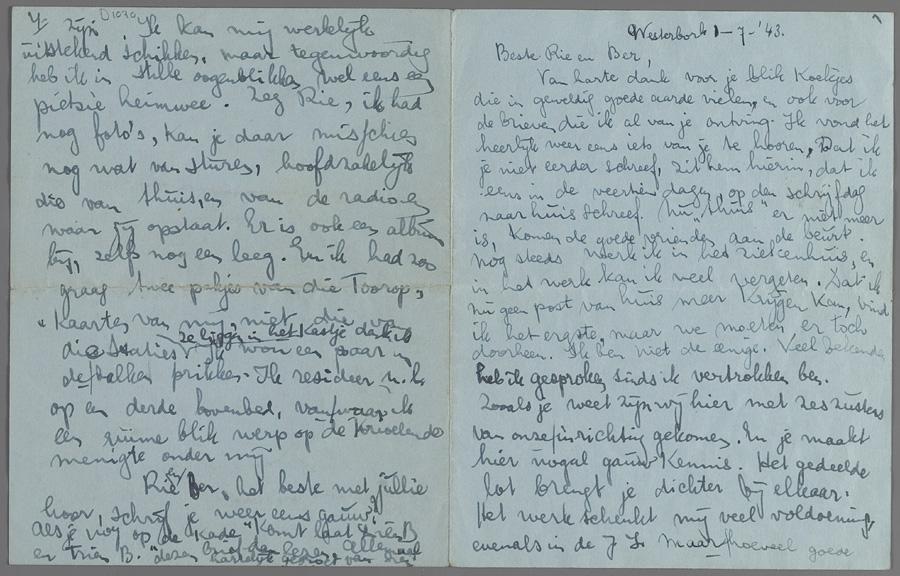 Westerbork 1-7-'43.
Beste Rie en Ber,
Van harte dank voor je blik Koekjes
die in geweldig goede aarde vielen, en ook voor
de brieven die ik al van je ontving. Ik vond het
heerlijk weer eens iets van je te hooren, Dat ik
je niet eerder schreef, zit hem hierin, dat ik
eens in de veertien dagen, op den schrijfdag
naar huis schreef. Nu "thuis" er niet meer
is, komen de goede vrienden aan de beurt.
Nog steeds werk ik in het ziekenhuis, en
in het werk kan ik veel vergeten. Dat ik
nu geen post van huis meer krijgen kan, vind
ik het ergste, maar we moeten er toch
doorheen. Ik ben niet de eenige. Veel bekenden
heb ik gesproken sinds ik vertrokken ben.
Zooals je weet zijn wij hier met zes zusters
van onze inrichting gekomen. En je maakt
hier nogal gauw Kennis. Het gedeelde
lot brengt je dichter bij elkaar.
Het werk schenkt mij veel voldoening
evenals in de J I. Maar hoeveel goede
zijn. Ik kan mij werkelijk
uitstekend schikken, maar tegenwoordig
heb ik in stille oogenblikken wel eens een
piétsie heimwee. Zeg Rie, ik had
nog foto's, kan je daar misschien
nog wat van sturen, hoofdzakelijk
die van thuis, en van de radio en
waar jij opstaat. Er is ook een album
bij, zelfs nog een leeg. En ik had zoo
graag twee pakjes van die Toorop,
Kaarten van mij, niet die van
die Staties ze liggen in het Kastje dank ik
Ik wou een paar in
de balken prikken. Ik resideer n.l.
op een derde bovenbed, vanwaar ik
een ruime blik werp op de Krioelende
menigte onder mij
Rie en Ber, het beste met jullie
hoor, schrijf je weer eens gauw?
Als je nog op de "Kade" komt laat Trien B
en Trien B. dezen brief dan lezen. Allemaal
hartelijk gegroet van